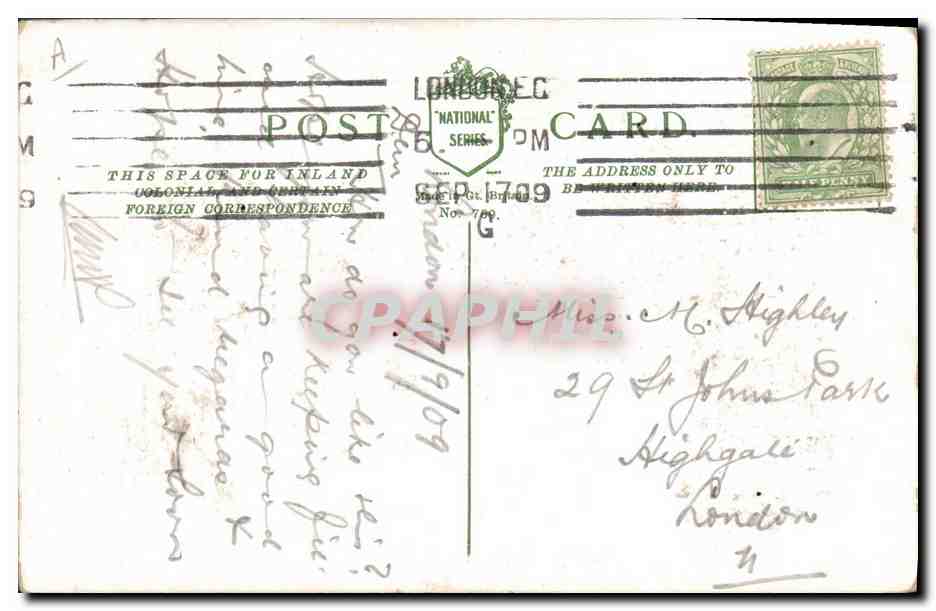 A/
LONDON.E.C
6. PM
SEP 17 09
G
C
M
9
POST CARD.
"NATIONAL"
SERIES.
Made in Gt. Britain.
No. 769.
THIS SPACE FOR INLAND
COLONIAL, AND CERTAIN
FOREIGN CORRESPONDENCE
THE ADDRESS ONLY TO
BE WRITTEN HERE.
HALF PENNY
London 17/9/09
How do you like this?
are keeping
are having a good
time. Kind regards &
Hope to see you soon
Miss. M. Highley
29 St Johns Park
Highgate
London
N
CPAPHIL